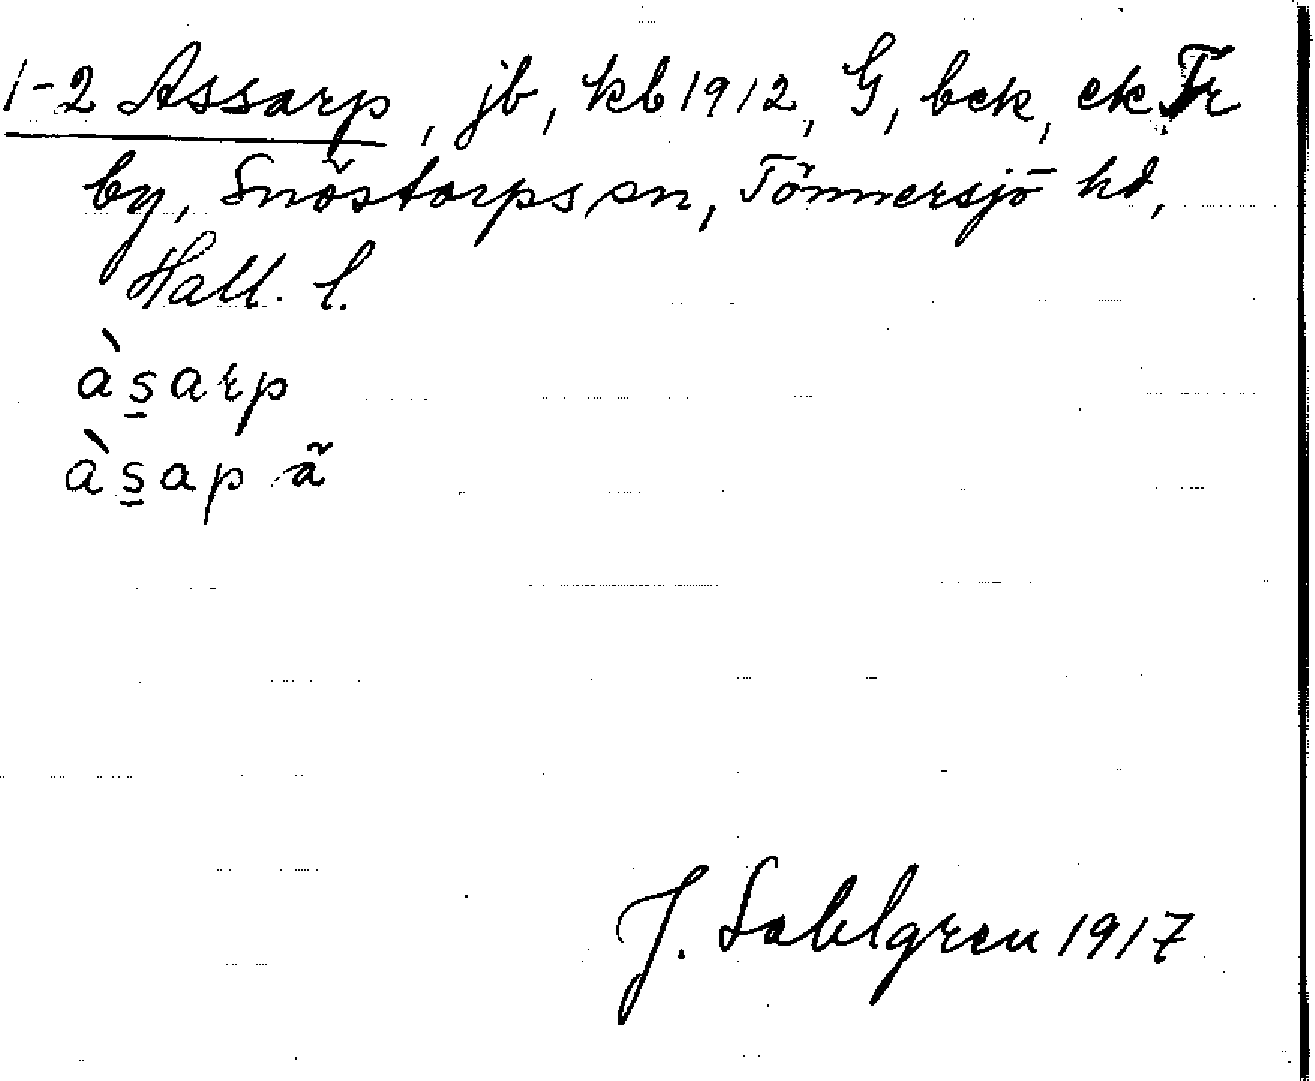 1-2 Assarp, jb, kb 1912, G, bck, ck Fr
by, Snöstorps sn, Tönnersjö hd,
Hall. l.
às̲arp
às̲ap ã
J. Sahlgren 1917